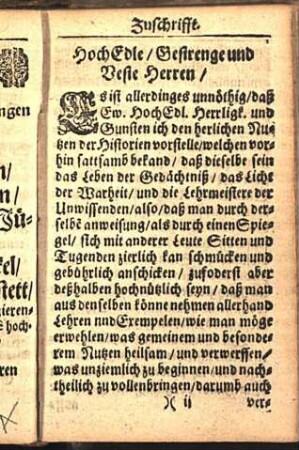 Zuschrifft.
HochEdle / Gestrenge und
Veste Herren /
Es ist allerdinges unnöthig / daß
Ew. HochEdl. Herrligk. und
Gunsten ich den herlichen Nu-
tzen der Historien vorstelle / welchen vor-
hin sattsamb bekand / daß dieselbe sein
das Leben der Gedächtniß / das Licht
der Warheit / und die Lehrmeistere der
Unwissenden / also / daß man durch der-
selbẽ anweisung / als durch einen Spie-
gel / sich mit anderer Leute Sitten und
Tugenden zierlich kan schmücken und
gebührlich anschicken / zufoderst aber
deßhalben hochnützlich seyn / daß man
aus denselben könne nehmen allerhand
Lehren nnd Exempelen / wie man möge
erwehlen / was gemeinem und besonde-
rem Nutzen heilsam / und verwerffen /
was unziemlich zu beginnen / und nach-
theilich zu vollenbringen / darumb auch
)( ij ver-
ngen
n /
n /
Jü-
kel /
stett /
zieren-
s hoch-
ren